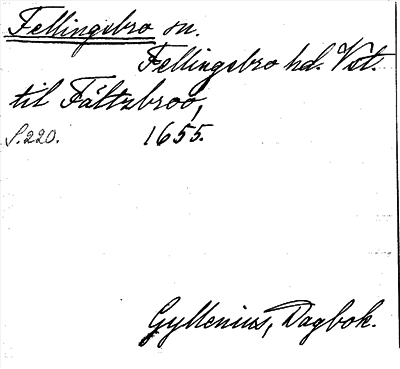 Fellingsbro sn.
Fellingsbro hd. Vst.
til Fältzbroo,
S. 220. 1655.
Gyllenius, Dagbok.